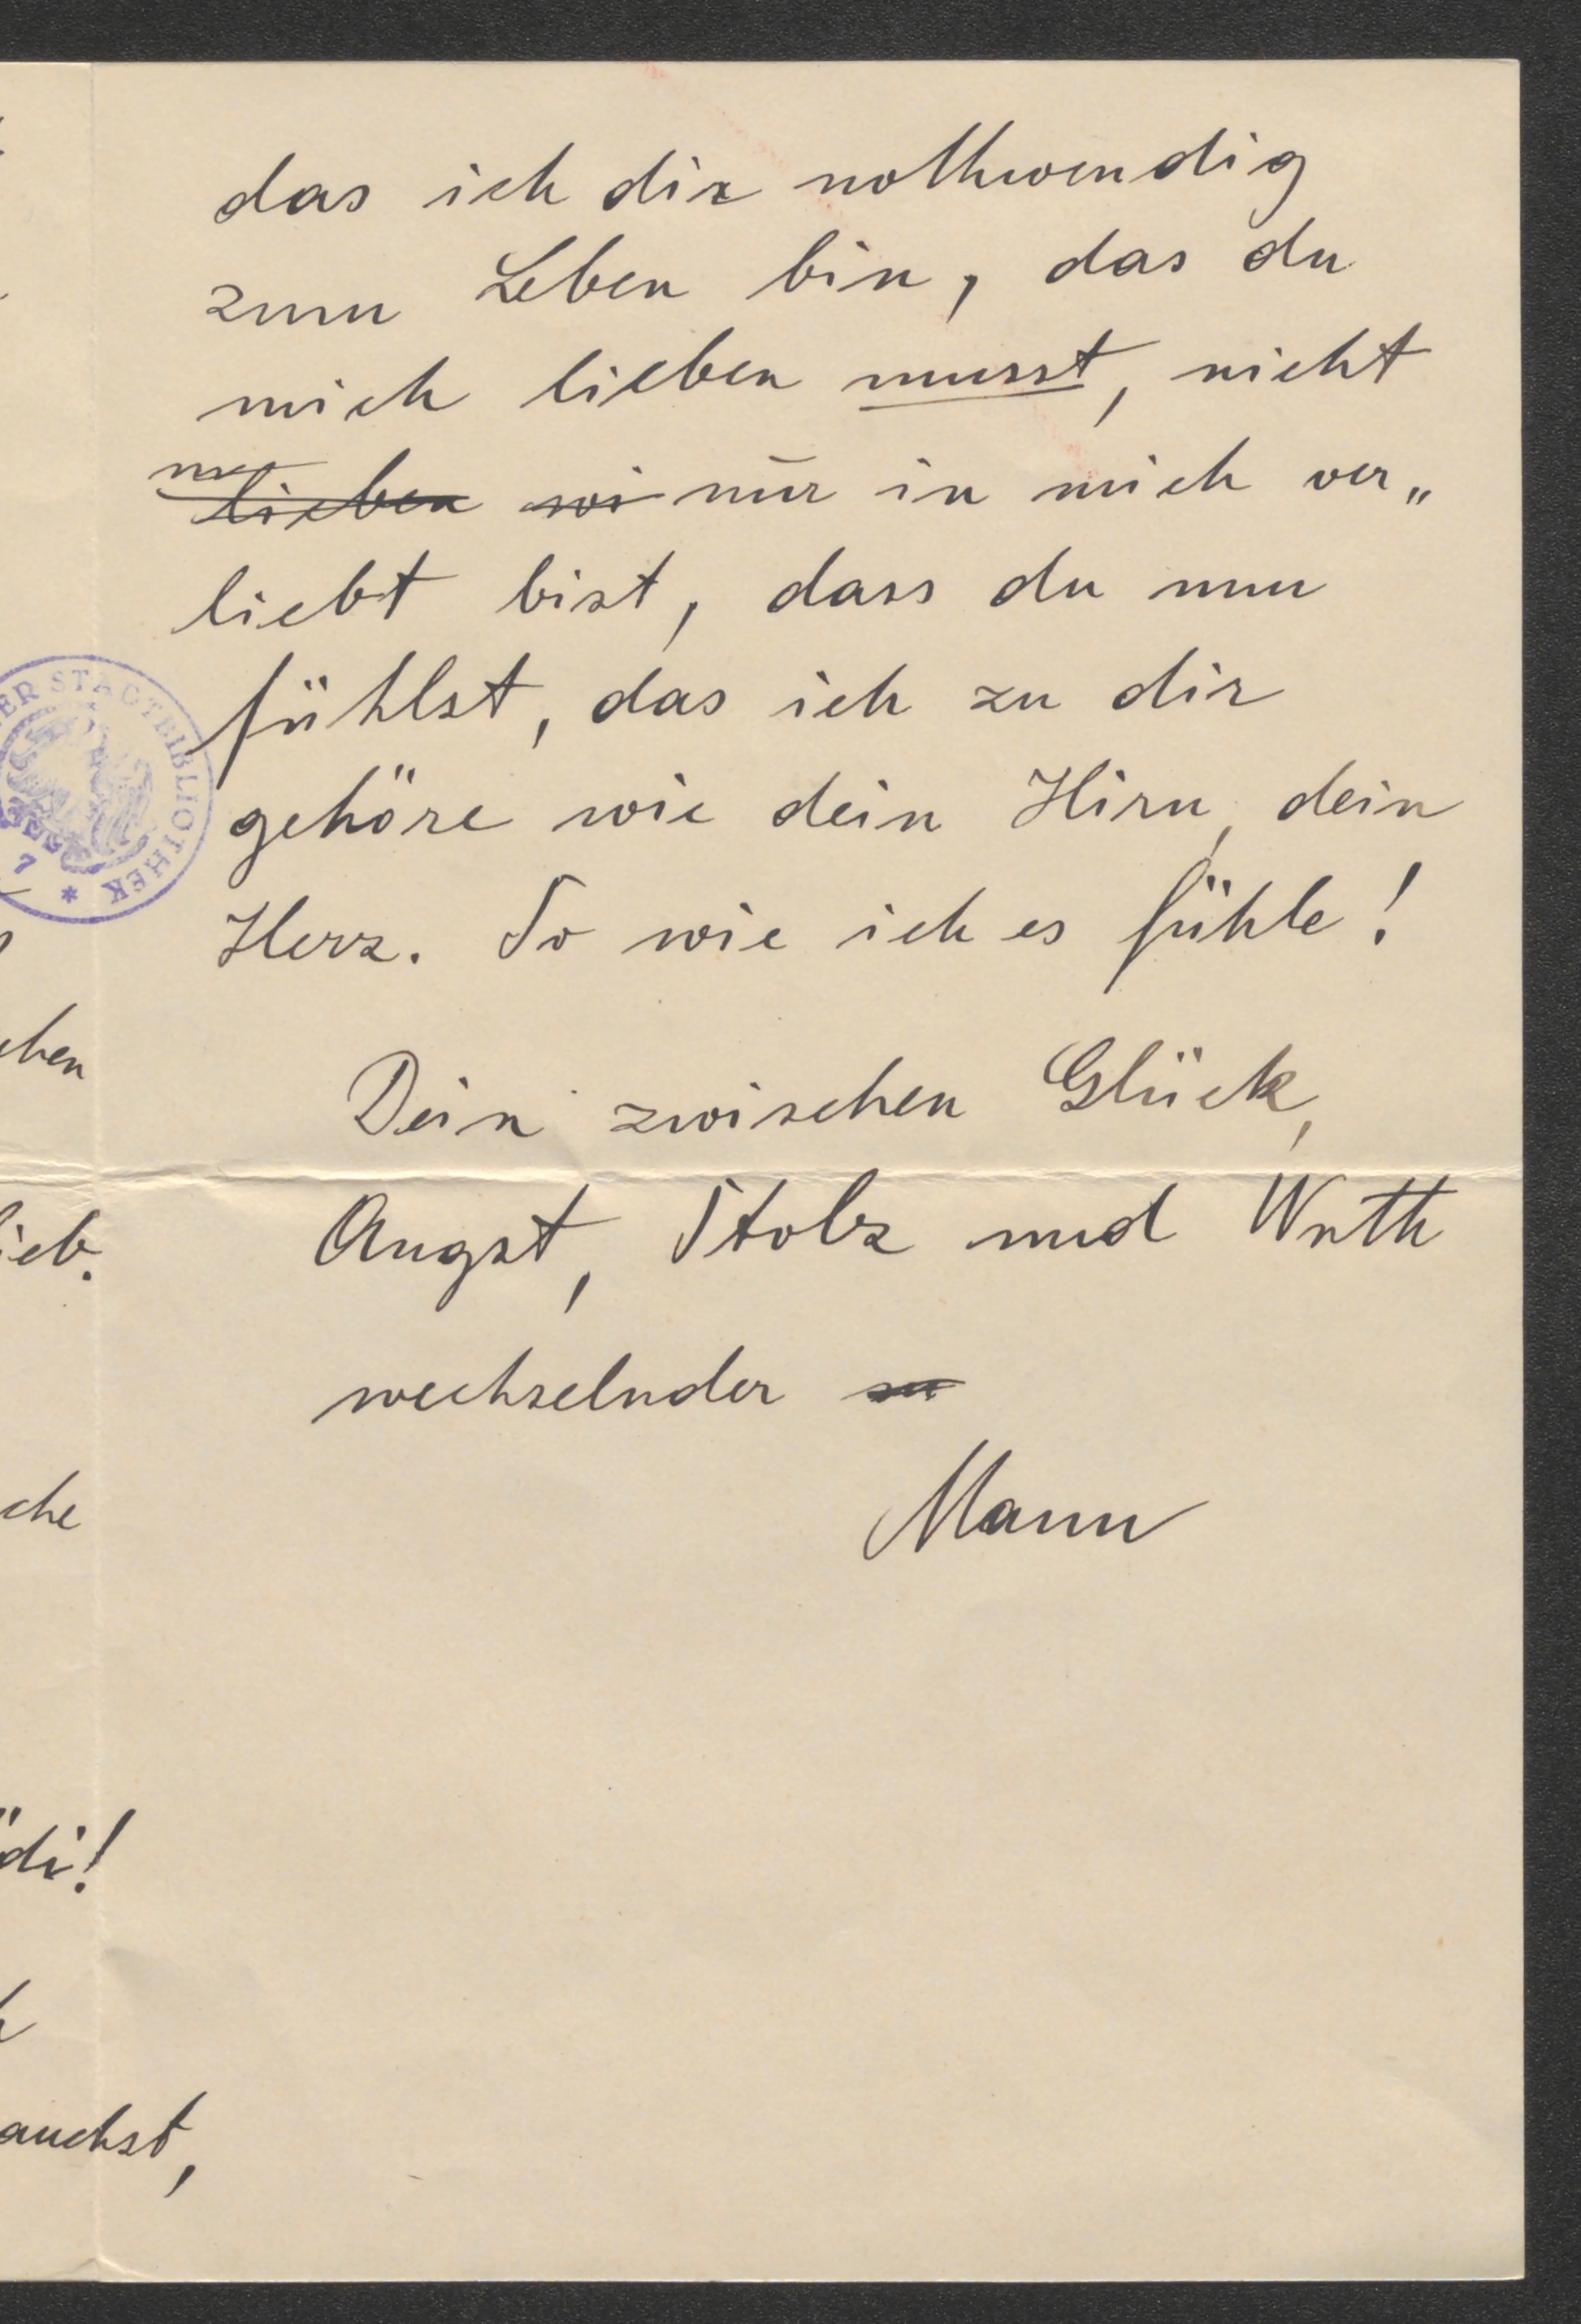 das ich dir nothwendig
zum Leben bin, das du
mich lieben musst, nicht
lieben wi nur in mich ver„
liebt bist, dass du nun
fühlst, das ich zu dir
gehöre wie dein Hirn, dein
Herz. So wie ich es fühle!
Dein zwischen Glück,
Angst, Stolz und Wuth
wechselnder
Mann
ER STADTBIBLIOTHEK
7 *
chen
ieb.
che
ödi!
auchst,